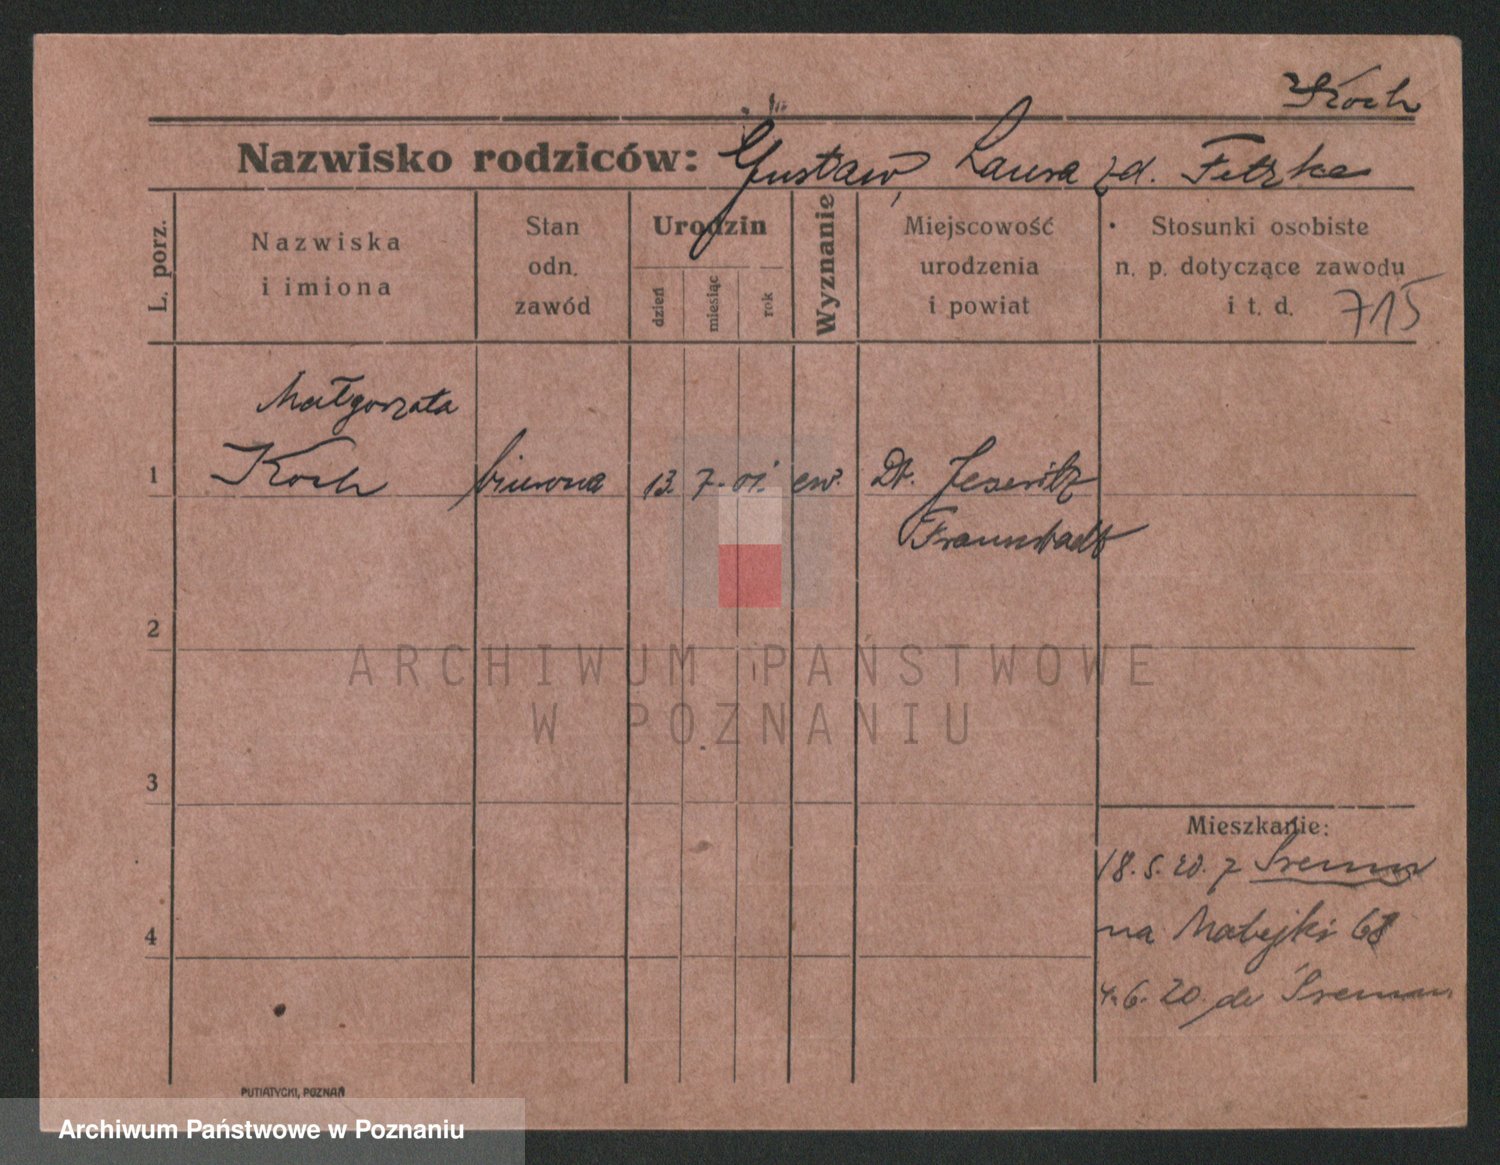 Koch
Nazwisko rodziców: Gustaw, Laura zd. Fetzke
L. porz.
Nazwiska
i imiona
Stan
odn.
zawód
Urodzin
dzień
miesiąc
rok
Wyznanie
Miejscowość
urodzenia
i powiat
Stosunki osobiste
n. p. dotyczące zawodu
i t. d.
715
Małgorzata
1 Koch biurowa 13. 7. 01. ew. Dt. Jeseritz
Fraunstadt
2
ARCHIWUM PAŃSTWOWE
W POZNANIU
3
Mieszkanie:
18.5.20. z Śremu
na Matejki 68
4
4.6.20 do Śremu
PUTIATYCKI, POZNAŃ
Archiwum Państwowe w Poznaniu